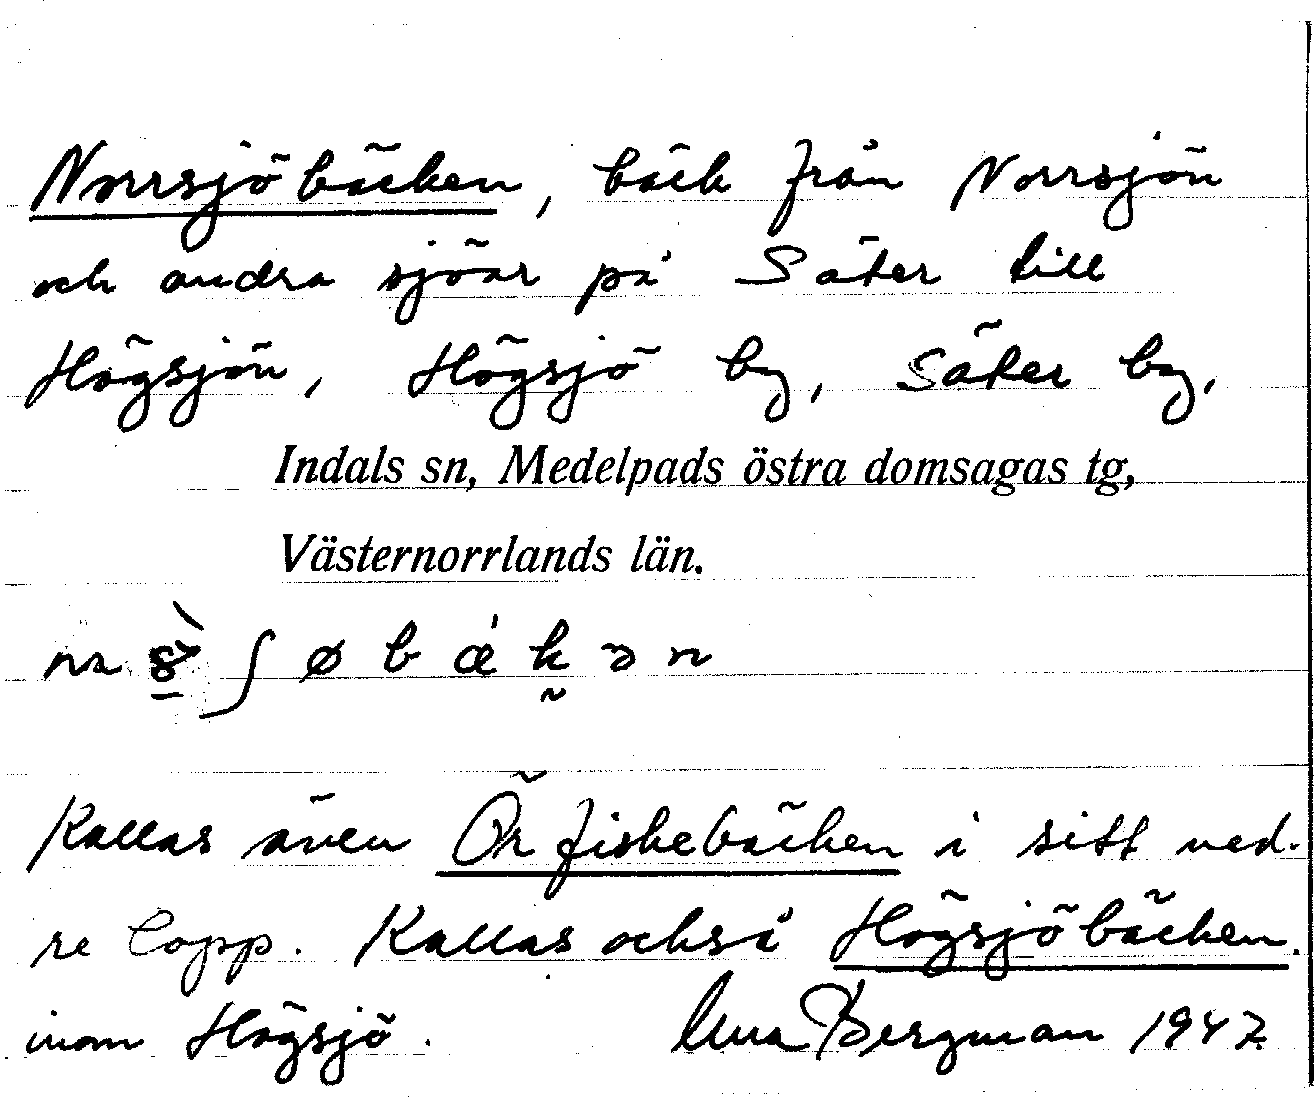 Norrsjöbäcken, bäck från Norrsjön
och andra sjöar på Säter till
Högsjön, Högsjö by, Säter by,
Indals sn, Medelpads östra domsagas tg,
Västernorrlands län.
Kallas även Örfiskebäcken i sitt ned-
re lopp. Kallas också Högsjöbäcken
inom Högsjö. Bergman 1947